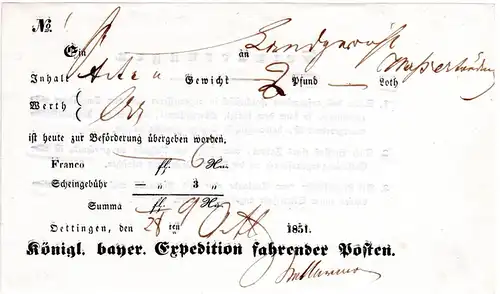 No.
Ein an Landgericht
Inhalt Akten Gewicht 2 Pfund — Loth
Werth
ist heute zur Beförderung übergeben worden.
Franco — fl. 6 Kr.
Scheingebühr — „ 3 „
Summa — fl. 9 Kr.
Oettingen, den 28ten Okt 1851.
Königl. bayer. Expedition fahrender Posten.